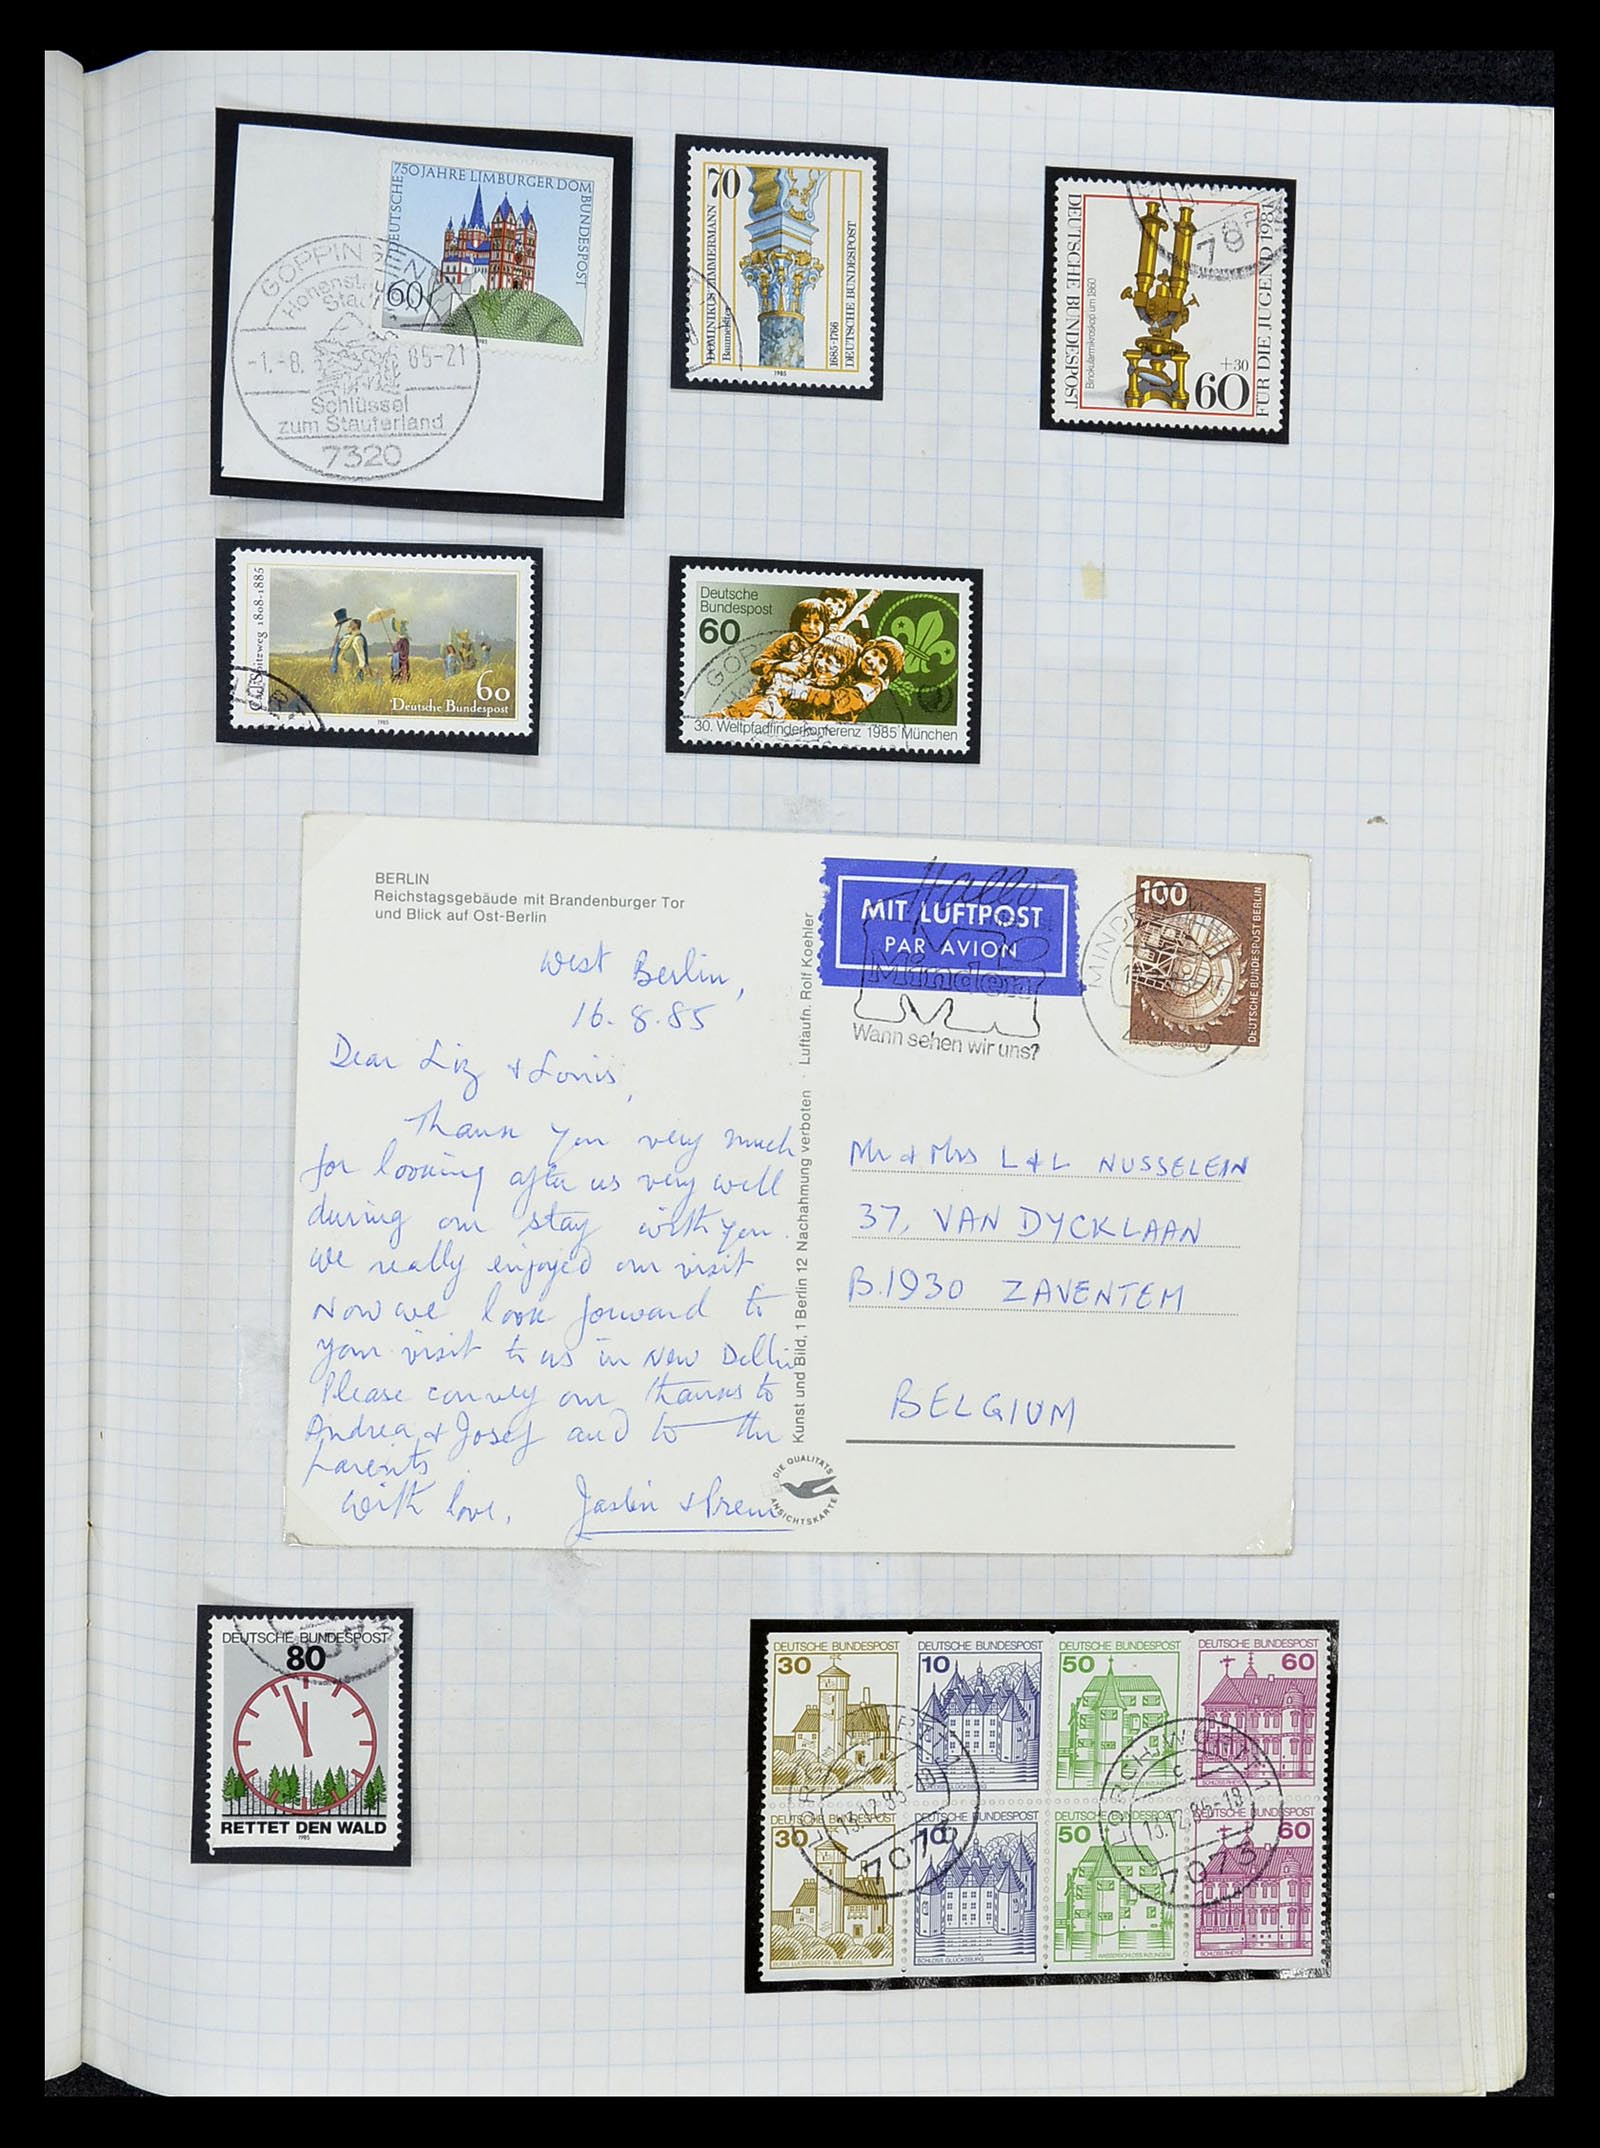 750 JAHRE LIMBURGER DOM
DEUTSCHE
BUNDESPOST
60
GÖPPINGEN
Hohenstaufen
Stadt
-1.-8. 85-21
Schlüssel
zum Stauferland
7320
70
DOMINIKUS ZIMMERMANN
Baumeister
1685-1766
DEUTSCHE BUNDESPOST
1985
DEUTSCHE BUNDESPOST
Binokularmikroskop um 1860
+30
60
FÜR DIE JUGEND 1981
Carl Spitzweg 1808-1885
60
Deutsche Bundespost
1985
Deutsche
Bundespost
60
30. Weltpfadfinderkonferenz 1985 München
BERLIN
Reichstagsgebäude mit Brandenburger Tor
und Blick auf Ost-Berlin
West Berlin,
16.8.85
Dear Liz & Louis,
Thank you very much
for looking after us very well
during our stay with you.
We really enjoyed our visit
Now we look forward to
your visit to us in New Delhi
Please convey our thanks to
Andrea & Josef and to the
parents
With love,
Kunst und Bild, 1 Berlin 12 Nachahmung verboten · Luftaufn. Rolf Koehler
DIE QUALITÄTS
ANSICHTSKARTE
MIT LUFTPOST
PAR AVION
Hallo
Minden
Wann sehen wir uns?
MINDEN
100
DEUTSCHE BUNDESPOST BERLIN
Mr & Mrs L & L NUSSELEIN
37, VAN DYCKLAAN
B.1930 ZAVENTEM
BELGIUM
DEUTSCHE BUNDESPOST
80
RETTET DEN WALD
1985
DEUTSCHE BUNDESPOST DEUTSCHE BUNDESPOST DEUTSCHE BUNDESPOST DEUTSCHE BUNDESPOST
30 10 50 60
DEUTSCHE BUNDESPOST DEUTSCHE BUNDESPOST DEUTSCHE BUNDESPOST DEUTSCHE BUNDESPOST
30 10 50 60
BURG LUDWIGSTEIN WERRATAL SCHLOSS GLÜCKSBURG WASSERSCHLOSS INZLINGEN SCHLOSS RHEYDT
13.12.85-18
7073
13.12.85-18
7073